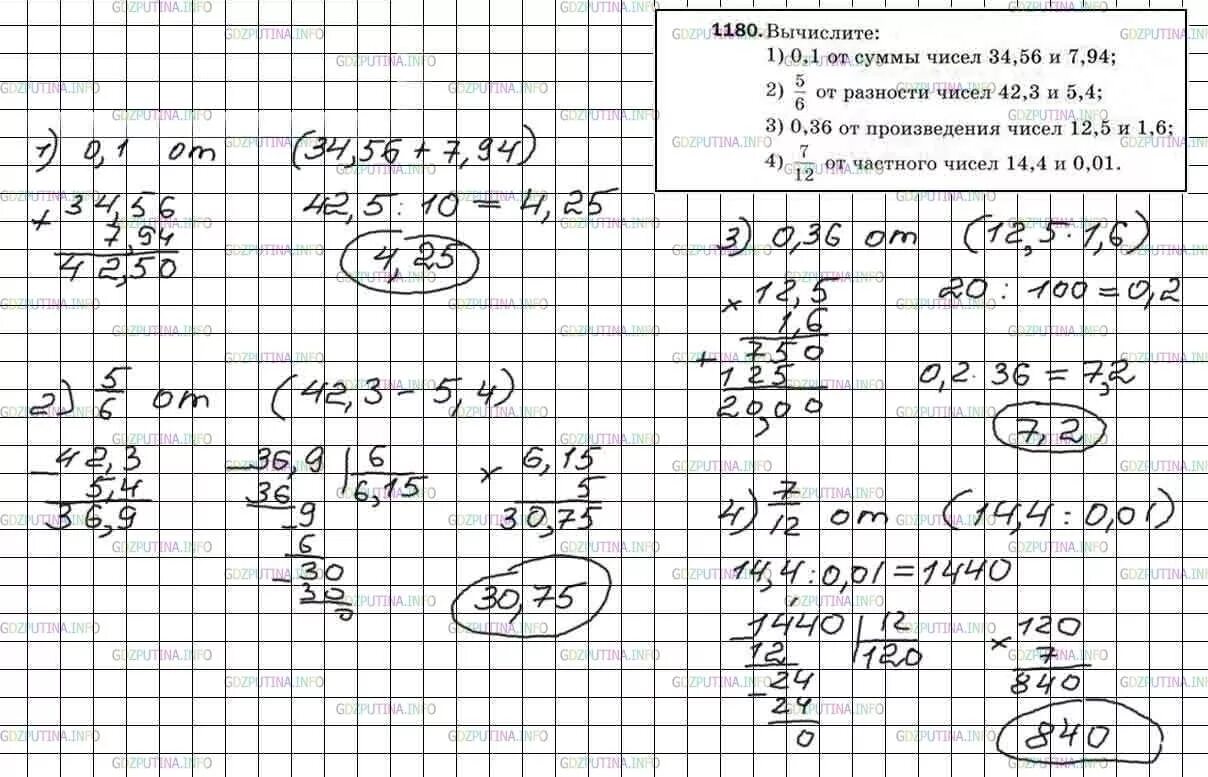 1180. Вычислите:
1) 0,1 от суммы чисел 34,56 и 7,94;
2) 5/6 от разности чисел 42,3 и 5,4;
3) 0,36 от произведения чисел 12,5 и 1,6;
4) 7/12 от частного чисел 14,4 и 0,01.
1) 0,1 от (34,56 + 7,94)
+ 34,56
7,94
42,50
42,5 : 10 = 4,25
4,25
2) 5/6 от (42,3 - 5,4)
- 42,3
5,4
36,9
- 36,9 | 6
36 6,15
- 9
6
- 30
30
0
× 6,15
5
30,75
30,75
3) 0,36 от (12,5 · 1,6)
× 12,5
1,6
+ 750
125
20,00
20 : 100 = 0,2
0,2 · 36 = 7,2
7,2
4) 7/12 от (14,4 : 0,01)
14,4 : 0,01 = 1440
- 1440 | 12
12 120
- 24
24
0
× 120
7
840
840
GDZPUTINA.INFO